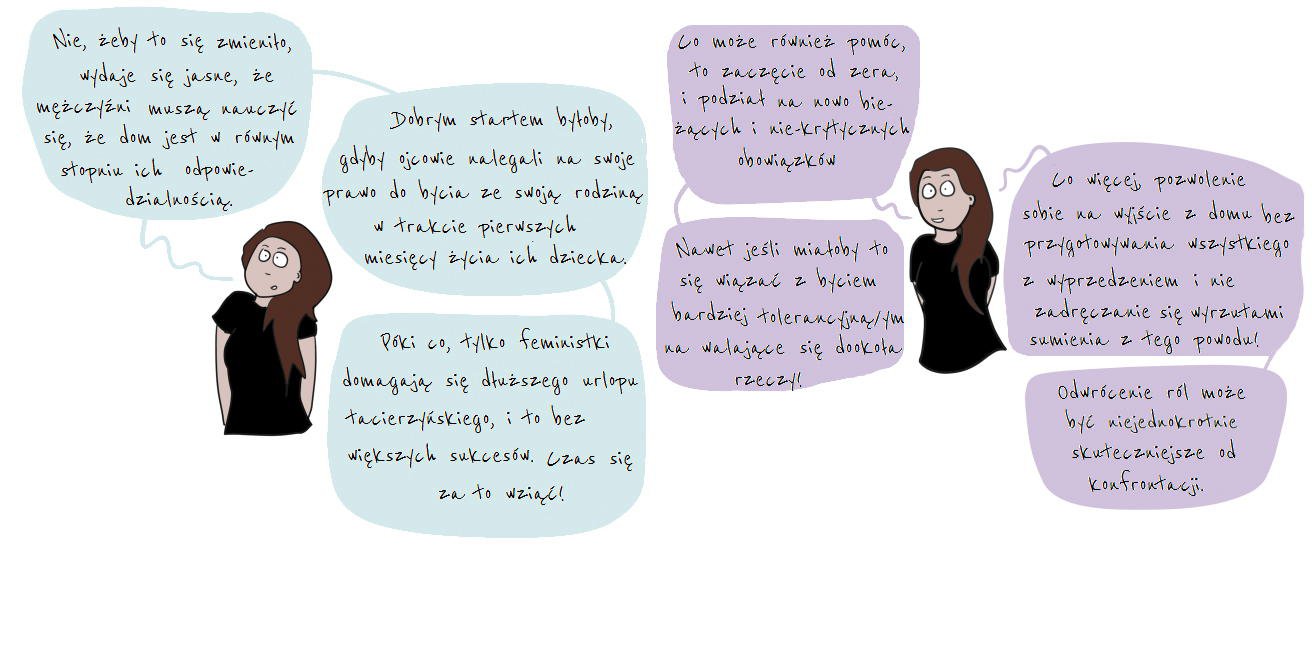 Nie, żeby to się zmieniło,
wydaje się jasne, że
mężczyźni muszą nauczyć
się, że dom jest w równym
stopniu ich odpowie-
dzialnością.
Dobrym startem byłoby,
gdyby ojcowie nalegali na swoje
prawo do bycia ze swoją rodziną
w trakcie pierwszych
miesięcy życia ich dziecka.
Póki co, tylko feministki
domagają się dłuższego urlopu
tacierzyńskiego, i to bez
większych sukcesów. Czas się
za to wziąć!
Co może również pomóc,
to zaczęcie od zera,
i podział na nowo bie-
żących i nie-krytycznych
obowiązków
Nawet jeśli miałoby to
się wiązać z byciem
bardziej tolerancyjną/ym
na walające się dookoła
rzeczy!
Co więcej, pozwolenie
sobie na wyjście z domu bez
przygotowywania wszystkiego
z wyprzedzeniem i nie
zadręczanie się wyrzutami
sumienia z tego powodu!
Odwrócenie ról może
być niejednokrotnie
skuteczniejsze od
konfrontacji.